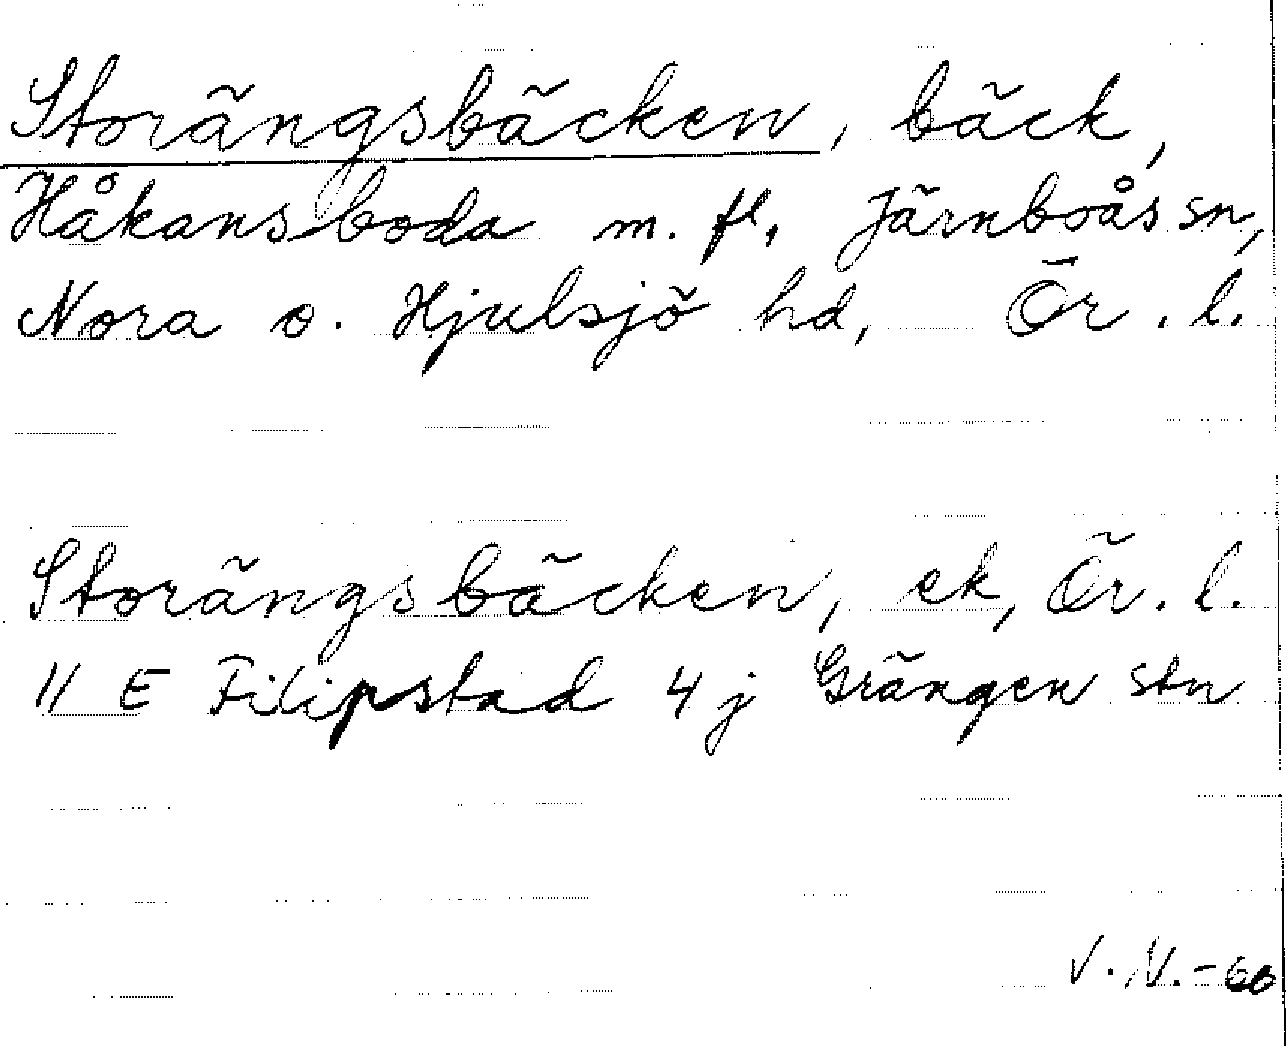 Storängsbäcken, bäck,
Håkansboda m. fl., Järnboås sn,
Nora o. Hjulsjö hd, Ör. l.
Storängsbäcken, ek, Ör. l.
11 E Filipstad 4 j Grängen stn
V. N. -60